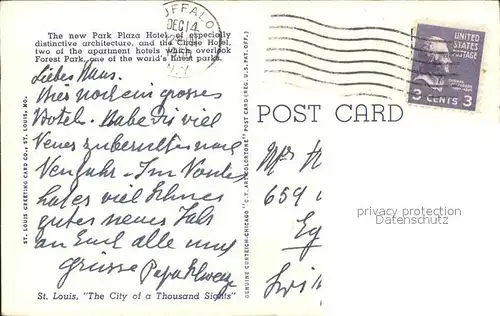 The new Park Plaza Hotel, of especially
distinctive architecture, and the Chase Hotel,
two of the apartment hotels which overlook
Forest Park, one of the world's finest parks.
BUFFALO
DEC 14
N.Y.
UNITED STATES POSTAGE
3 CENTS 3
POST CARD
Liebes
Hier noch ein grosses
Hotel. Habe Dir viel
Neues zu berichten
Neujahr. Im
hat es viel Schnee
gutes neues Jahr
an Euch alle und
Grüsse Papa
Mrs H
659
Eg
Swi
privacy protection
oldthing.com
ST. LOUIS GREETING CARD CO., ST. LOUIS, MO.
GENUINE CURTEICH-CHICAGO "C.T. ART-COLORTONE" POST CARD (REG. U.S. PAT. OFF.)
St. Louis, "The City of a Thousand Sights"